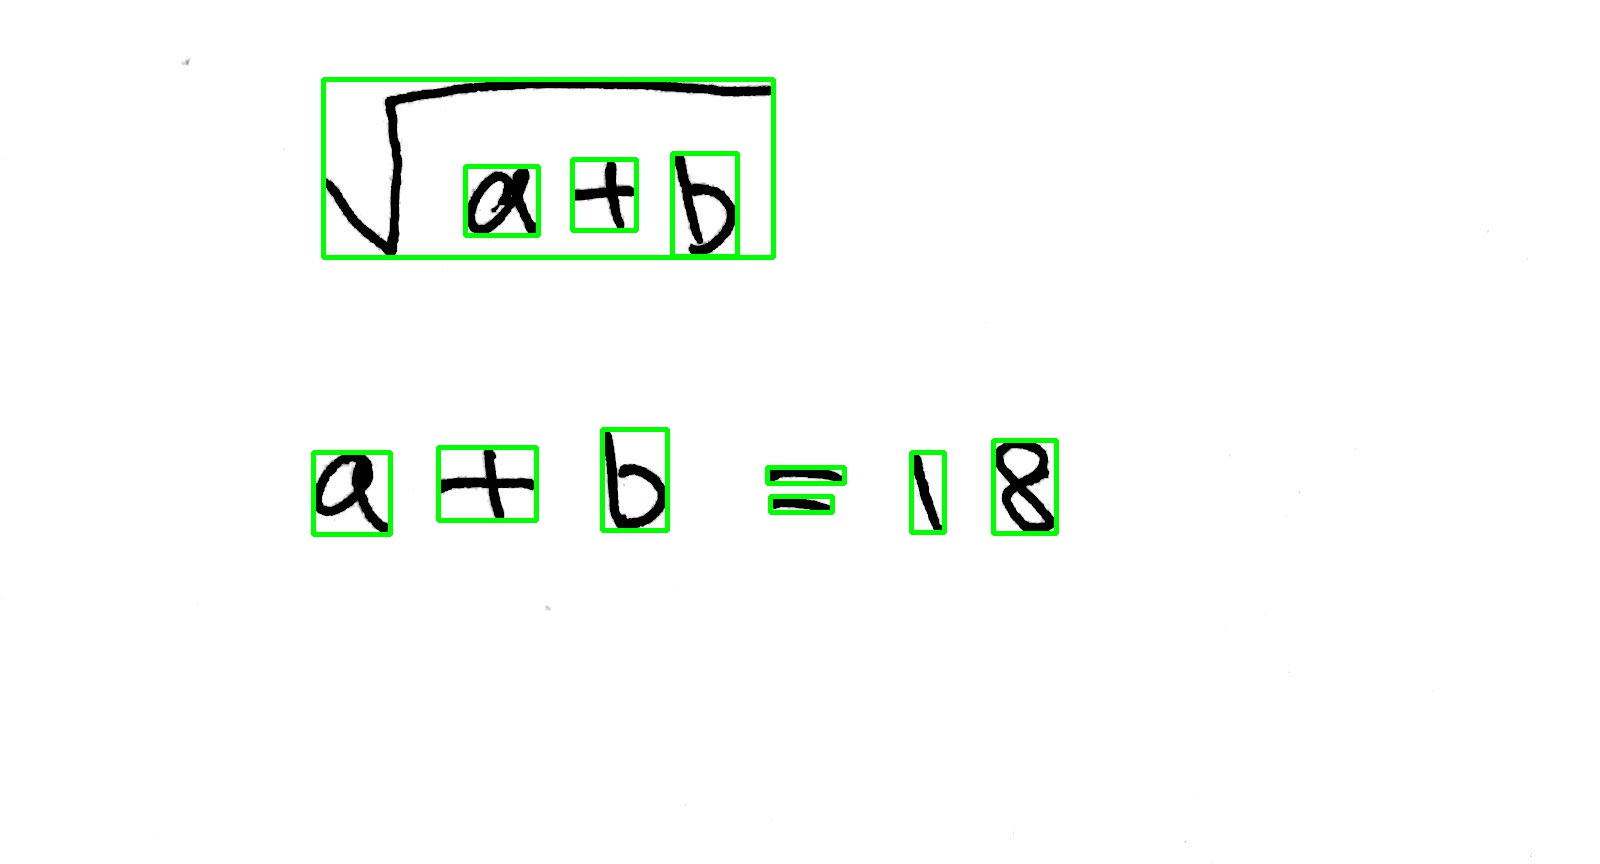 √(a+b)
a + b = 18